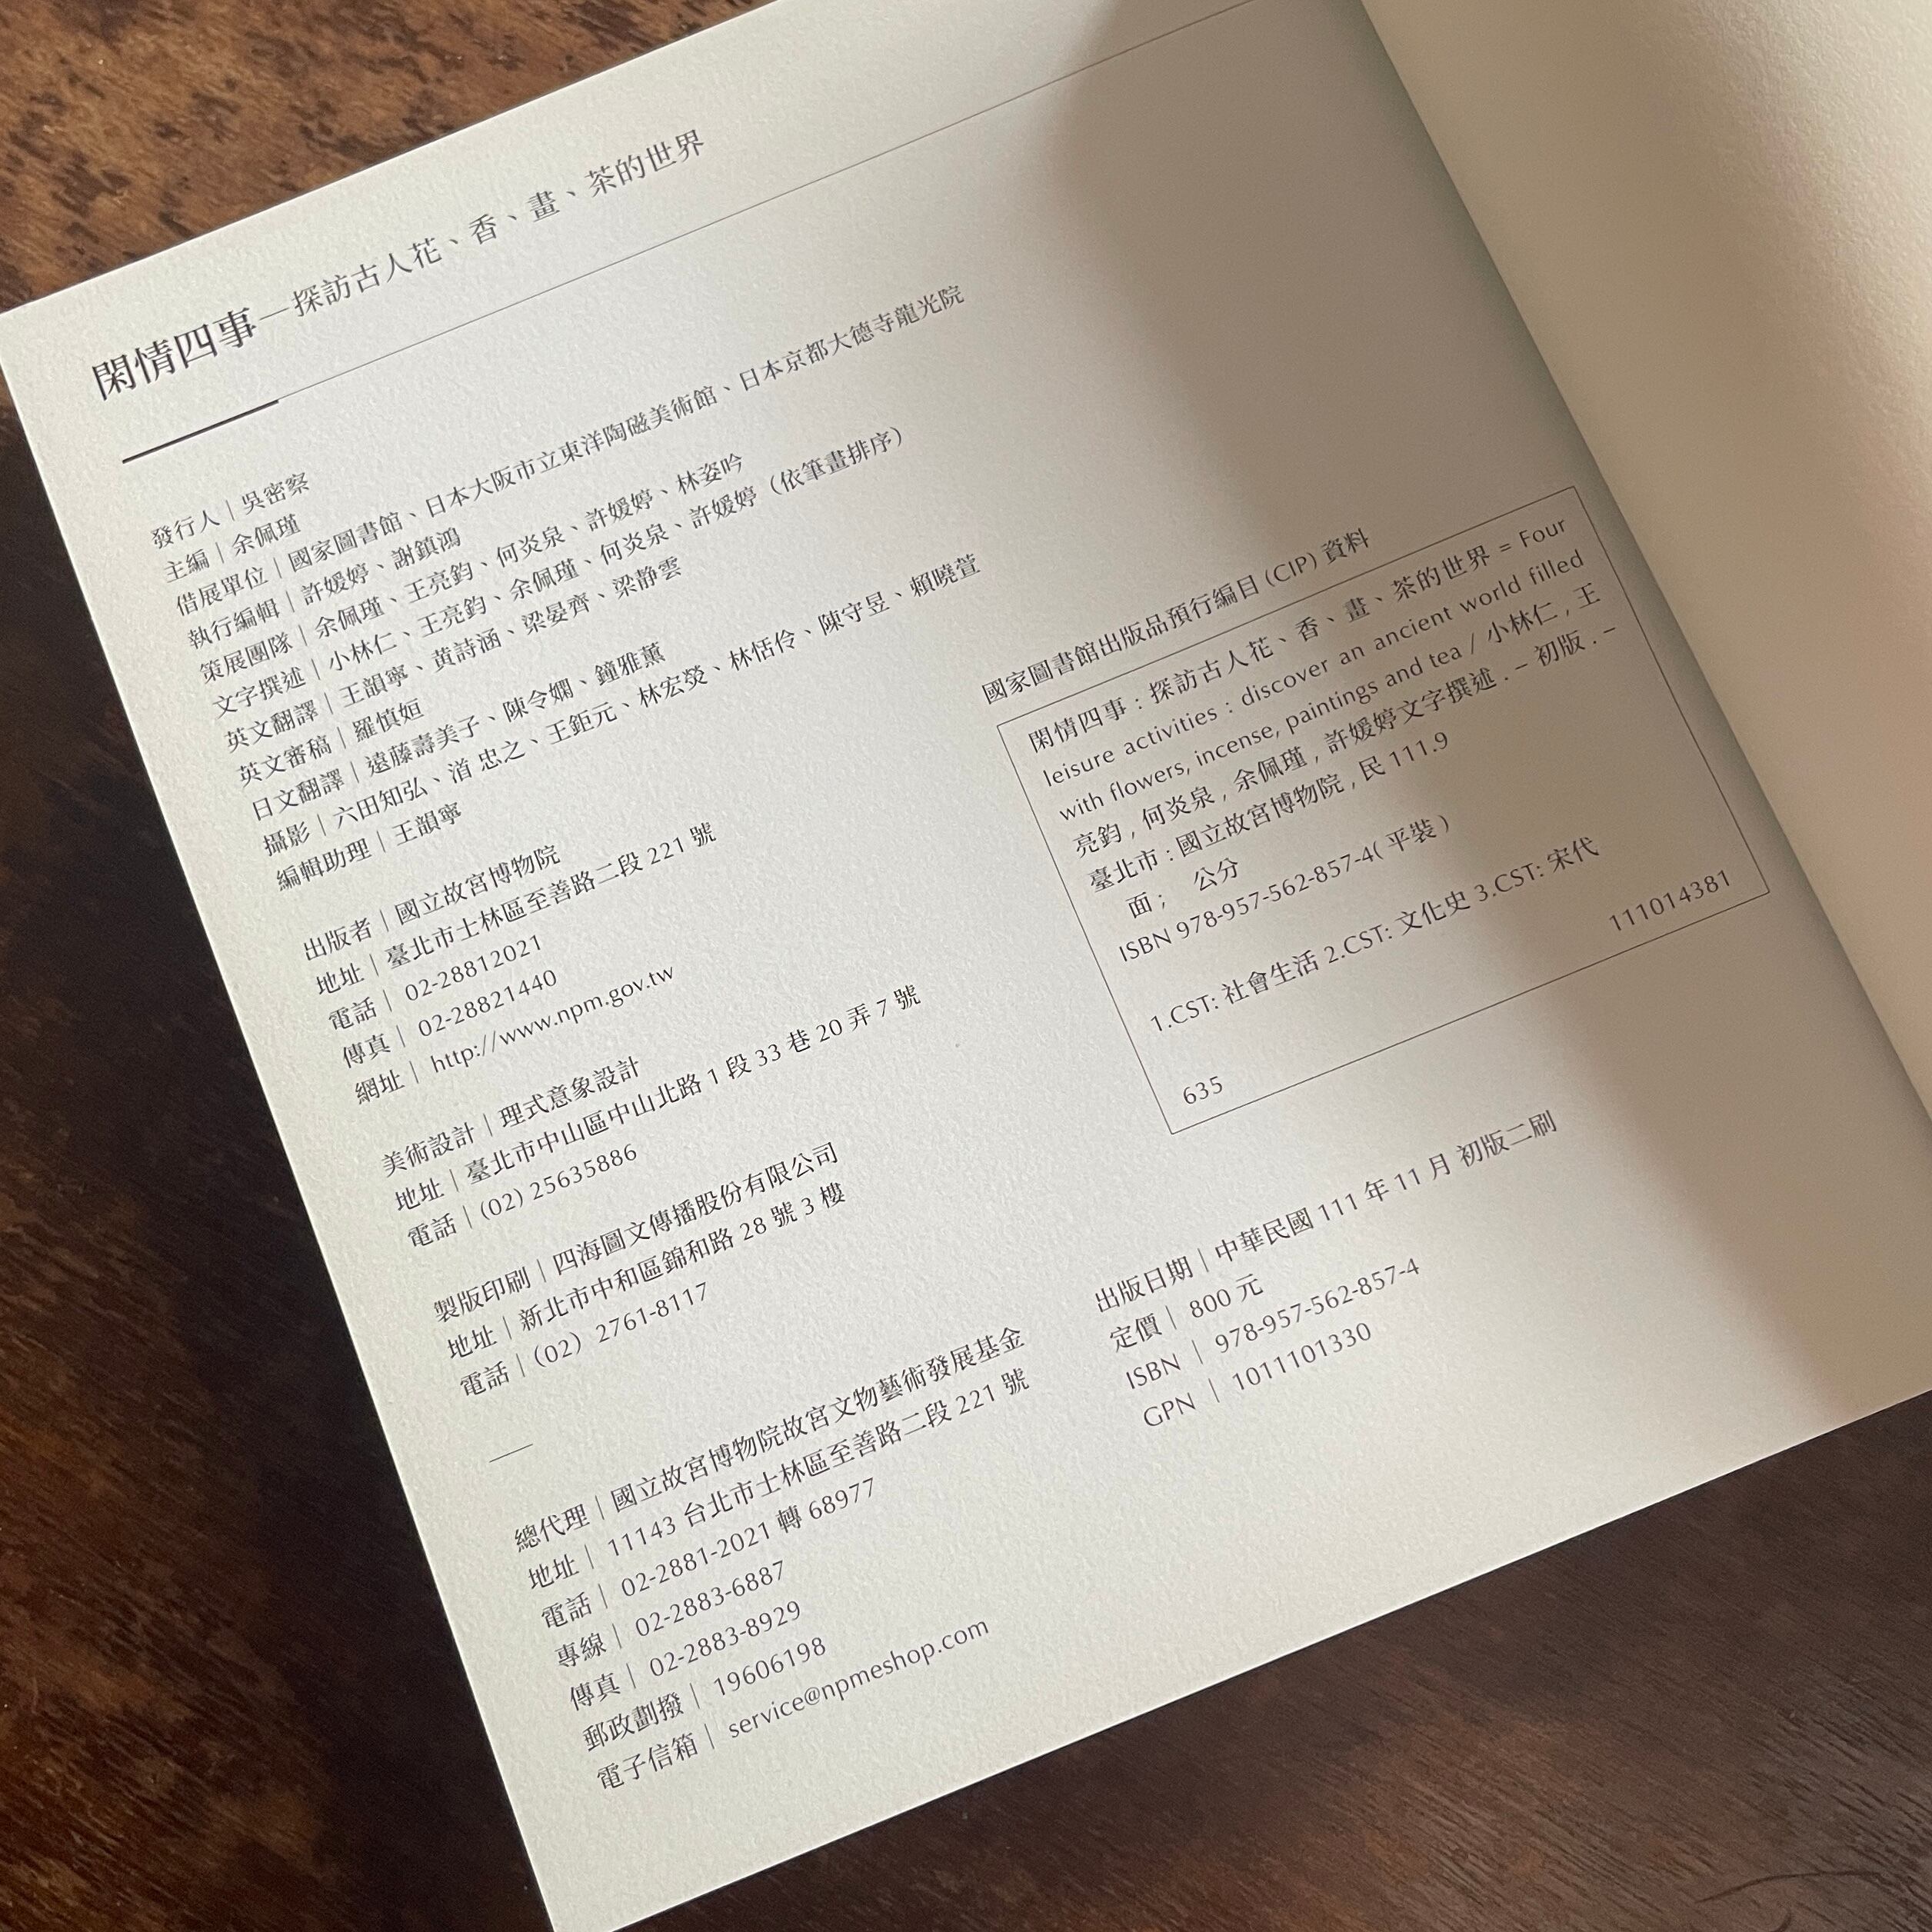 閑情四事—探訪古人花、香、畫、茶的世界
發行人｜吳密察
主編｜余佩瑾
借展單位｜國家圖書館、日本大阪市立東洋陶磁美術館、日本京都大德寺龍光院
執行編輯｜許媛婷、謝鎮鴻
策展團隊｜余佩瑾、王亮鈞、何炎泉、許媛婷、林姿吟
文字撰述｜小林仁、王亮鈞、余佩瑾、何炎泉、許媛婷（依筆畫排序）
英文翻譯｜王韻寧、黃詩涵、梁晏齊、梁静雲
英文審稿｜羅慎姮
日文翻譯｜遠藤壽美子、陳令嫻、鐘雅薰
攝影｜六田知弘、渞 忠之、王鉅元、林宏熒、林恬伶、陳守昱、賴曉萱
編輯助理｜王韻寧
出版者｜國立故宮博物院
地址｜臺北市士林區至善路二段 221 號
電話｜ 02-28812021
傳真｜ 02-28821440
網址｜ http://www.npm.gov.tw
美術設計｜理式意象設計
地址｜臺北市中山區中山北路 1 段 33 巷 20 弄 7 號
電話｜(02) 25635886
製版印刷｜四海圖文傳播股份有限公司
地址｜新北市中和區錦和路 28 號 3 樓
電話｜（02）2761-8117
總代理｜國立故宮博物院故宮文物藝術發展基金
地址｜ 11143 台北市士林區至善路二段 221 號
電話｜ 02-2881-2021 轉 68977
專線｜ 02-2883-6887
傳真｜ 02-2883-8929
郵政劃撥｜ 19606198
電子信箱｜ service@npmeshop.com
國家圖書館出版品預行編目 (CIP) 資料
閑情四事 : 探訪古人花、香、畫、茶的世界 = Four
leisure activities : discover an ancient world filled
with flowers, incense, paintings and tea / 小林仁 , 王
亮鈞 , 何炎泉 , 余佩瑾 , 許媛婷文字撰述 . – 初版 . –
臺北市 : 國立故宮博物院 , 民 111.9
面 ; 公分
ISBN 978-957-562-857-4( 平裝 )
1.CST: 社會生活 2.CST: 文化史 3.CST: 宋代
635 111014381
出版日期｜中華民國 111 年 11 月 初版二刷
定價｜ 800 元
ISBN ｜ 978-957-562-857-4
GPN ｜ 1011101330